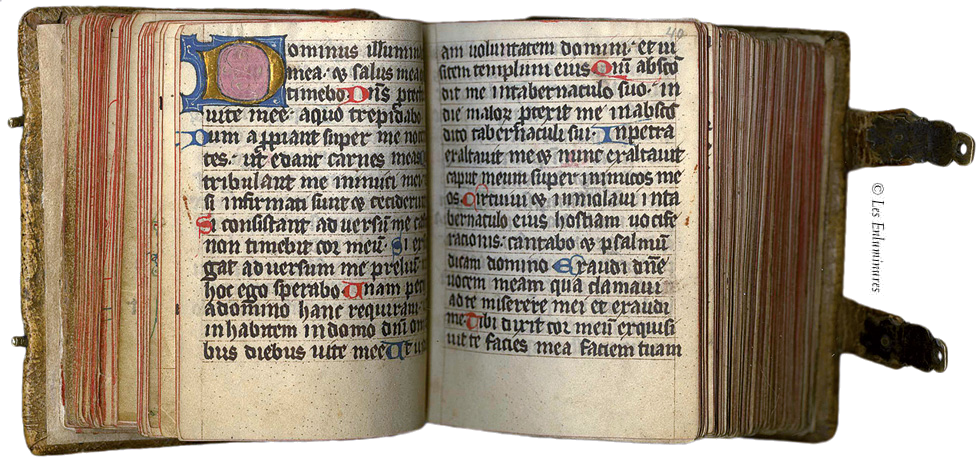 Dominus illumin
mea· & salus mea
timebo Dn̅s prote
uite mee· aquo trepidabo
Dum appiant super me noce
tes· ut edant carnes meas
tribulant me inimici mei
si infirmati sunt & ceciderunt
Si consistant adversu̅ me cas
non timebit cor meu̅· Si ex
gat adversum me preliu̅·
hoc ego sperabo Unam peti
adomino hanc requiram·
inhabitem indomo dn̅i om
bus diebus uite mee Ut ui
am voluntatem domini· et ui
sitem templum eius Qm̅ absco̅
dit me intabernaculo suo· in
die malor̅ p̅terit me inabsco̅
dito tabernaculi sui· Inpetra
exaltavit me & nunc exaltavit
caput meum super inimicos me
os· Circuivi & inmolavi inta
bernaculo eius hostiam vocife
racionis· cantabo & psalmu̅
dicam domino Exaudi dn̅e
vocem meam qua clamavi
adte miserere mei et exaudi
me· Tibi dixit cor meu̅ exquisi
uit te facies mea faciem tuam
© Les Enluminures